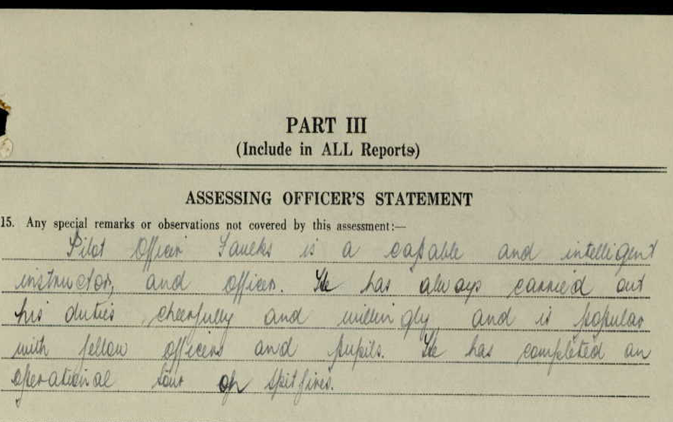 PART III
(Include in ALL Reports)
ASSESSING OFFICER'S STATEMENT
15. Any special remarks or observations not covered by this assessment:—
Pilot Officer Faulks is a capable and intelligent
instructor, and officer. He has always carried out
his duties cheerfully and willingly and is popular
with fellow officers and pupils. He has completed an
operational tour on Spitfires.